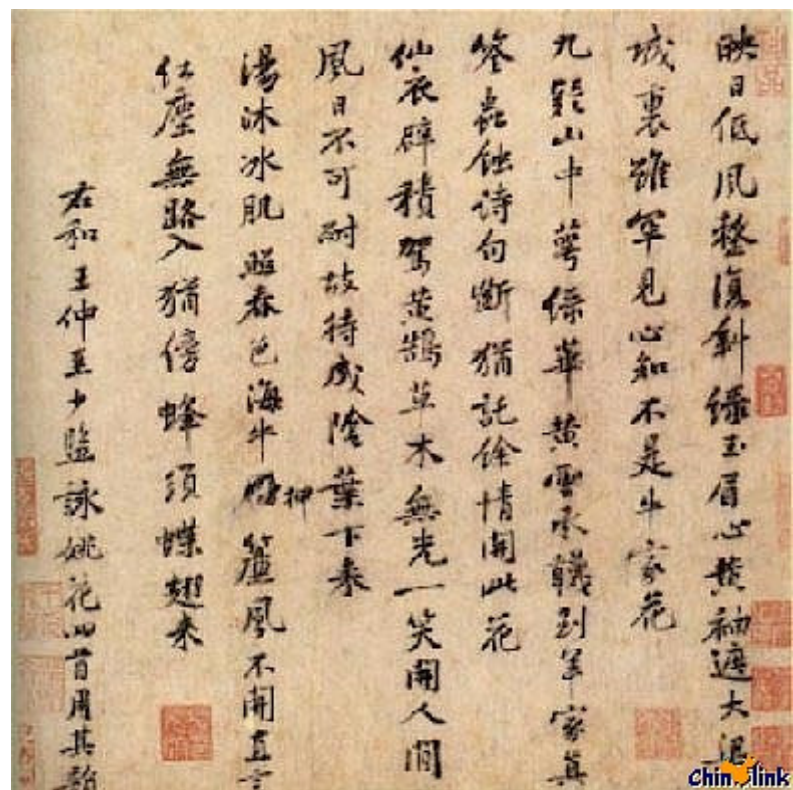 映日低風整復斜綠玉眉心黃袖遮大梁
城裏雖罕見心知不是牛家花
九疑山中萼綠華黃雲承韈到羊家真
筌蟲蝕詩句斷猶託餘情開此花
仙衣襞積駕黃鵠草木無光一笑開人間
風日不可耐故待成陰葉下來
湯沐冰肌照春色海牛押簾風不開直言
紅塵無路入猶傍蜂須蝶翅來
右和王仲至少監詠姚花四首用其韻
Chinalink